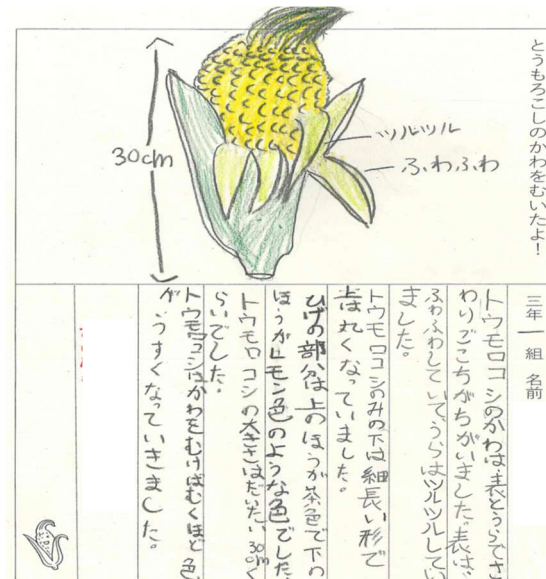 とうもろこしのかわをむいたよ！
30cm
ツルツル
ふわふわ
三年 一 組 名前
トウモロコシのかわは、表とうらでさ
わりごこちがちがいました。表は、
ふわふわしていて、うらはツルツルしてい
ました。
トウモロコシのみの下は細長い形で
上はれくなっていました。
ひげの部分は上のほうが茶色で下の
ほうがレモン色のような色でした。
トウモロコシの大きさはだいたい30cmく
らいでした。
トウモロコシはかわをむけばむくほど色
が、うすくなっていきました。